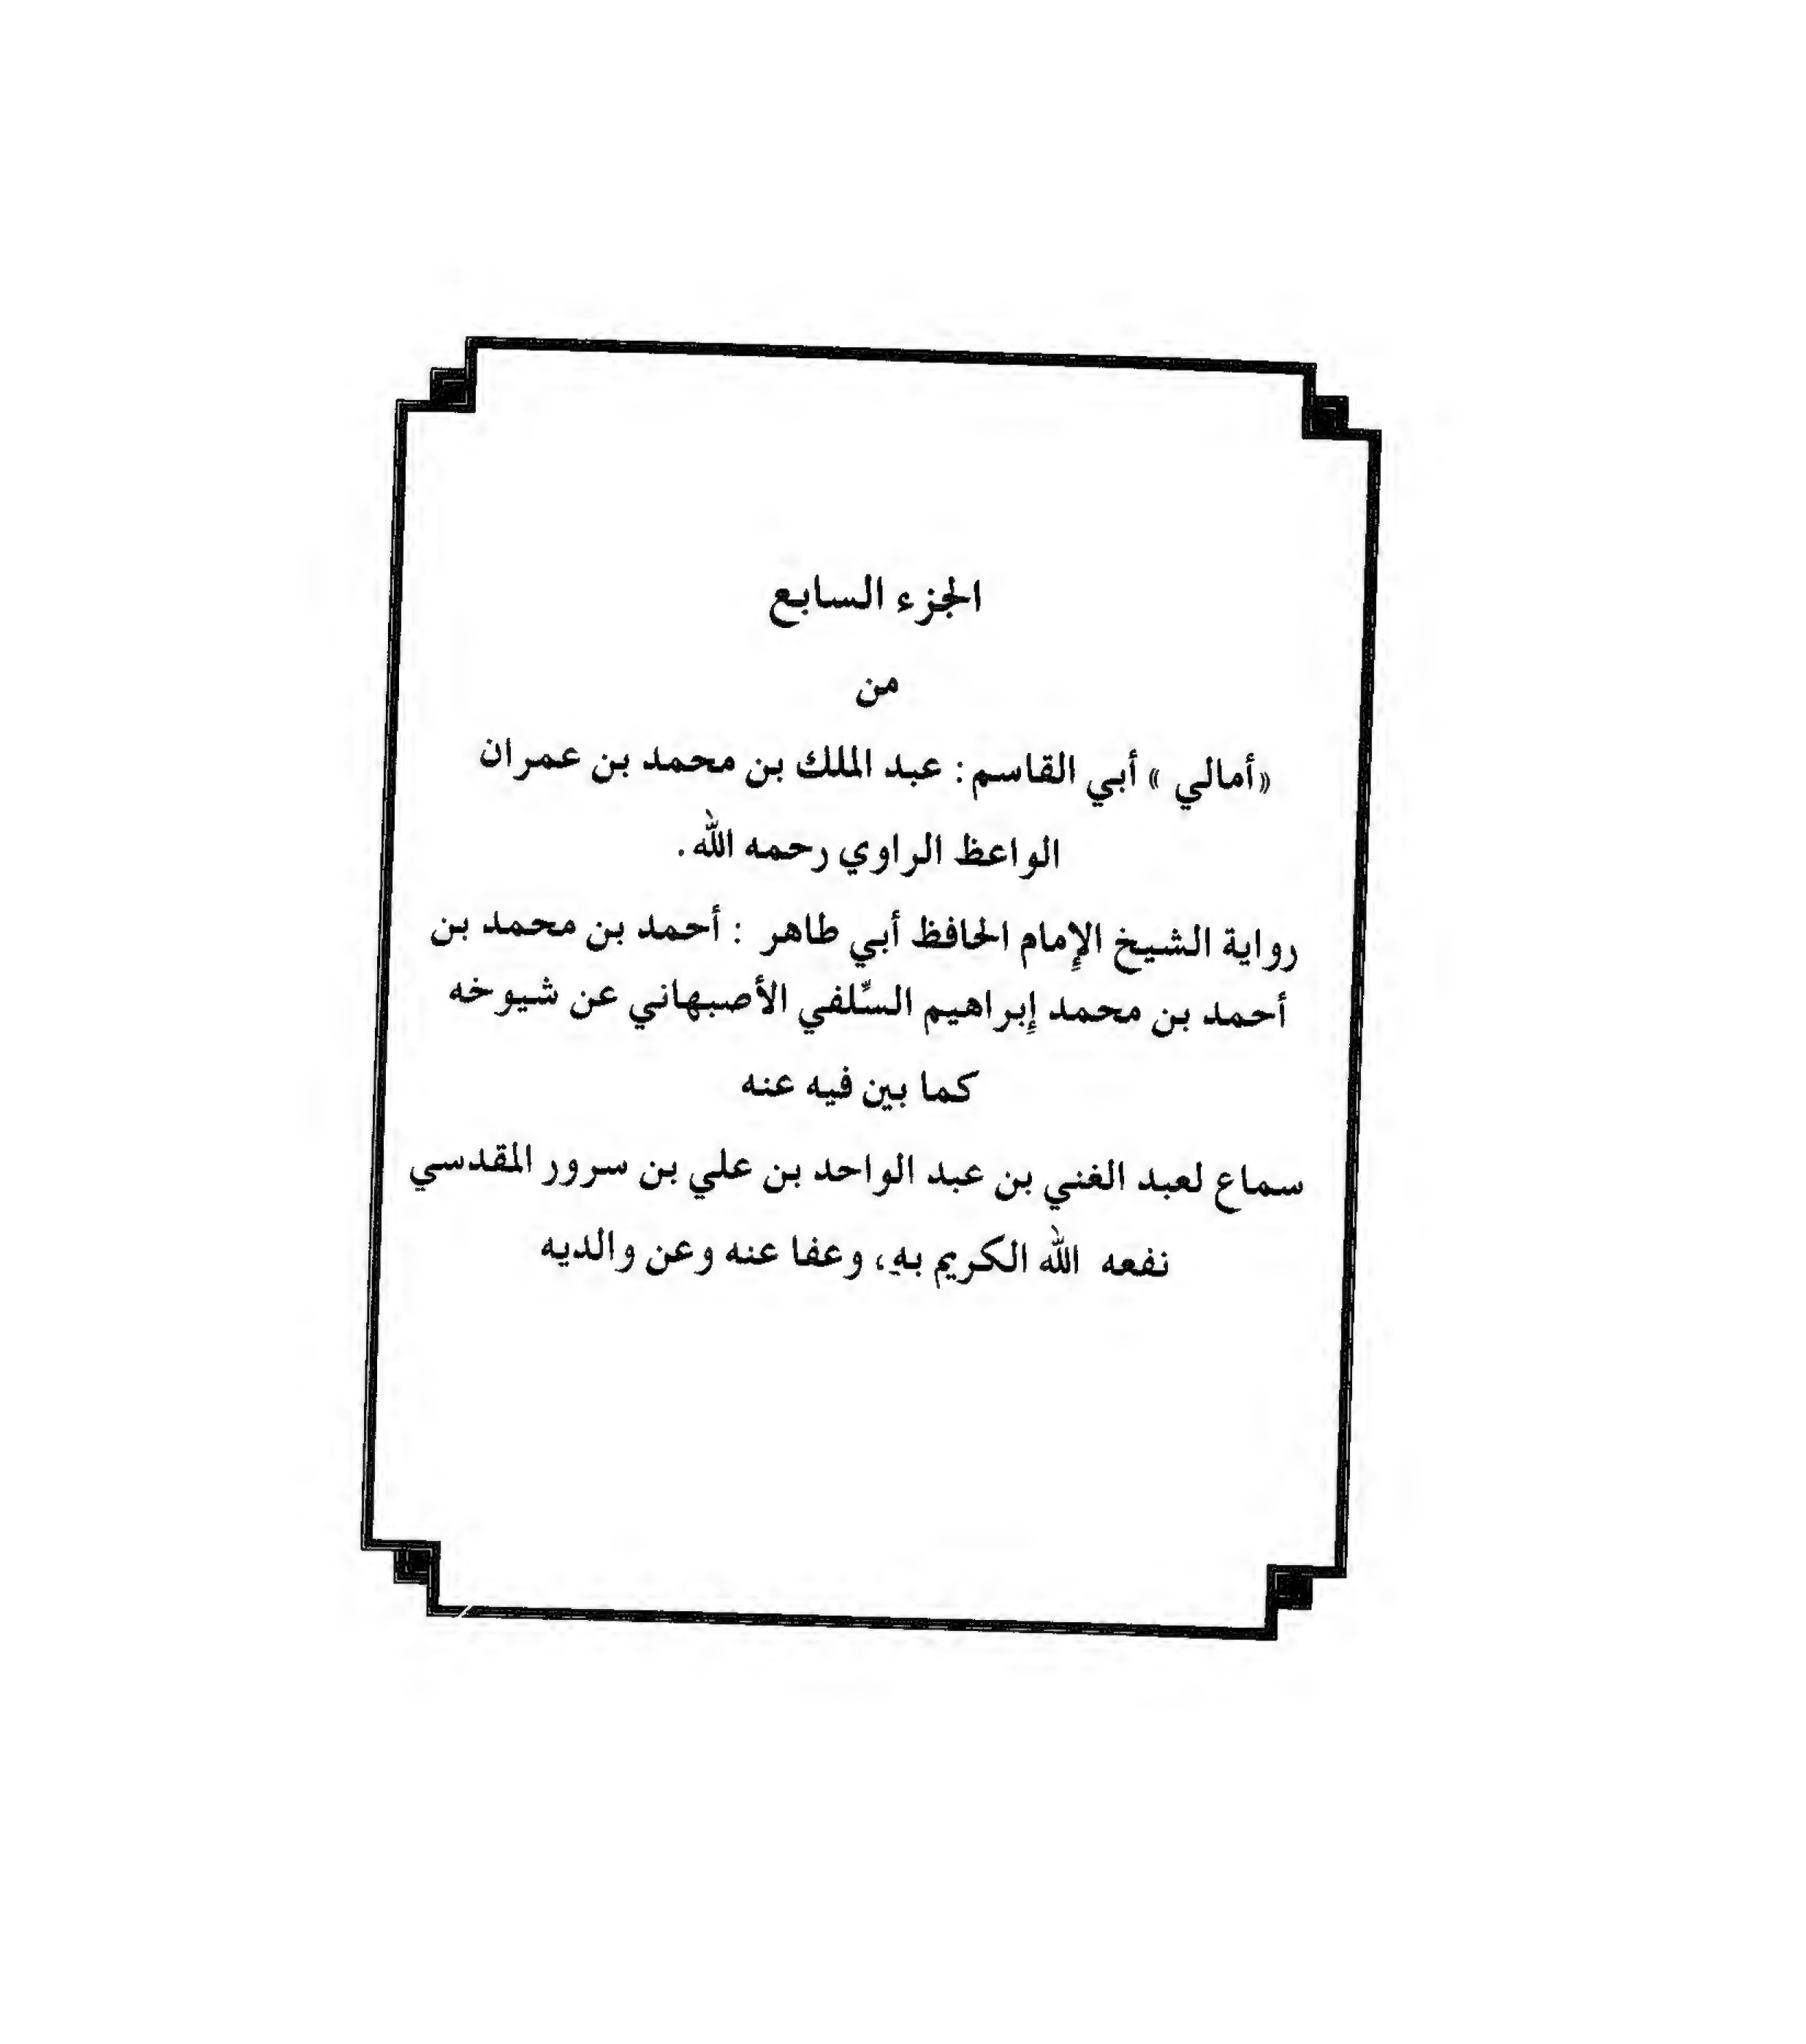 الجزء السابع
من
«أمالي» أبي القاسم: عبد الملك بن محمد بن عمران
الواعظ الراوي رحمه الله.
رواية الشيخ الإِمام الحافظ أبي طاهر : أحمد بن محمد بن
أحمد بن محمد إِبراهيم السِّلفي الأصبهاني عن شيوخه
كما بين فيه عنه
سماع لعبد الغني بن عبد الواحد بن علي بن سرور المقدسي
نفعه الله الكريم بهِ، وعفا عنه وعن والديه